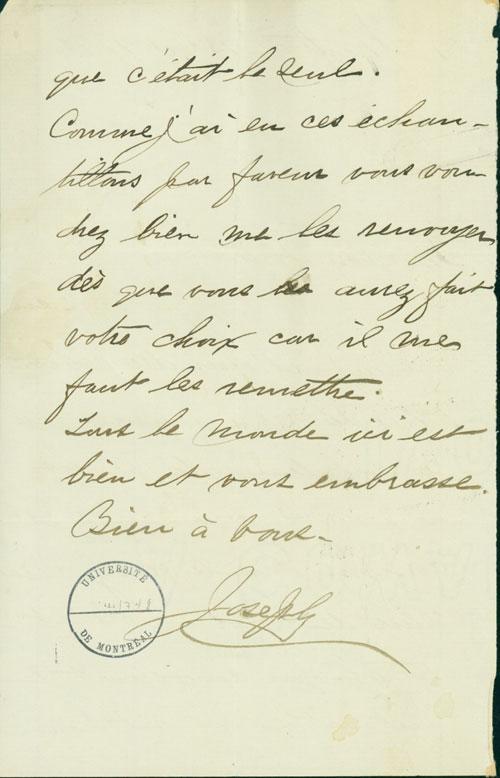 que c'était le seul.
Comme j'ai eu ces échan-
tillons par faveur vous vou-
drez bien me les renvoyer
dès que vous aurez fait
votre choix car il me
faut les remettre.
Tout le monde ici est
bien et vous embrasse.
Bien à vous -
Joseph
UNIVERSITÉ
DE MONTRÉAL